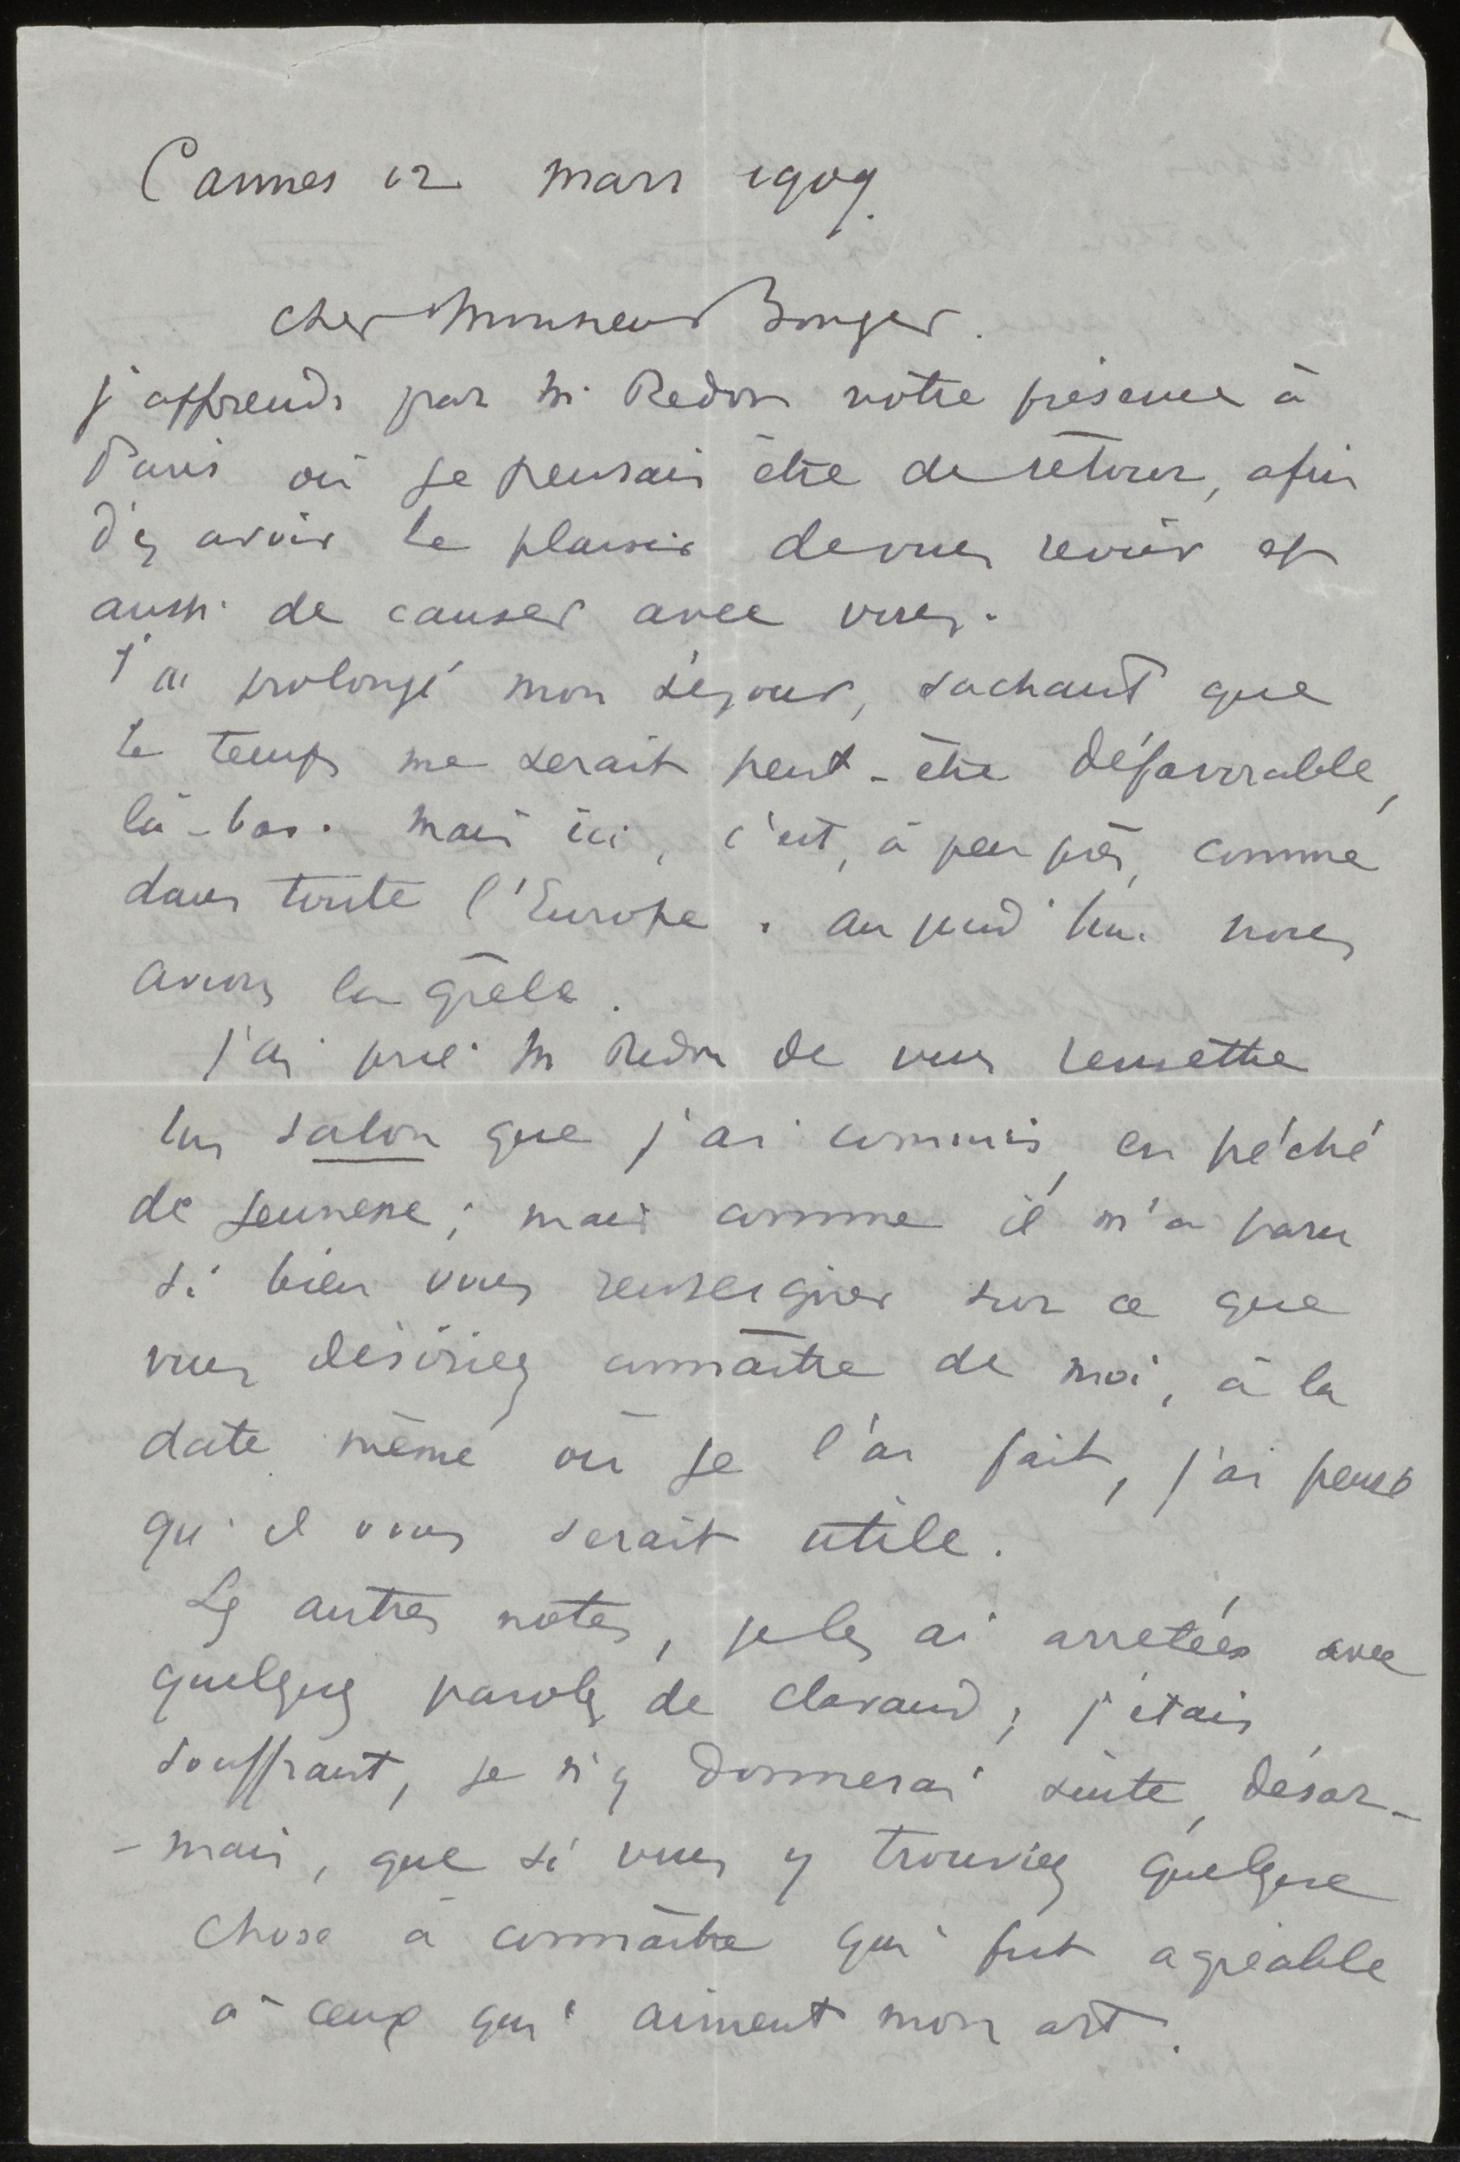 Cannes 12 mars 1909.
cher Monsieur Bonger.
j'apprends par M. Redon votre présence à
Paris où je pensais être de retour, afin
d'y avoir le plaisir de vous revoir et
aussi de causer avec vous.
J'ai prolongé mon séjour, sachant que
le temps me serait peut-être défavorable,
là-bas. Mais ici, c'est, à peu près, comme
dans toute l'Europe. aujourd'hui nous
avons la grêle.
J'ai prié M Redon de vous remettre
un salon que j'ai commis, en péché
de jeunesse ; mais comme il m'a paru
si bien vous renseigner sur ce que
vous désiriez connaître de moi, à la
date même où je l'ai fait, j'ai pensé
qu'il vous serait utile.
Les autres notes, je les ai arretées avec
quelques paroles de Clavaud ; j'étais
souffrant, je n'y donnerai suite, désor-
-mais, que si vous y trouviez quelque
chose à connaître qui fut agréable
à ceux qui aiment mon art.